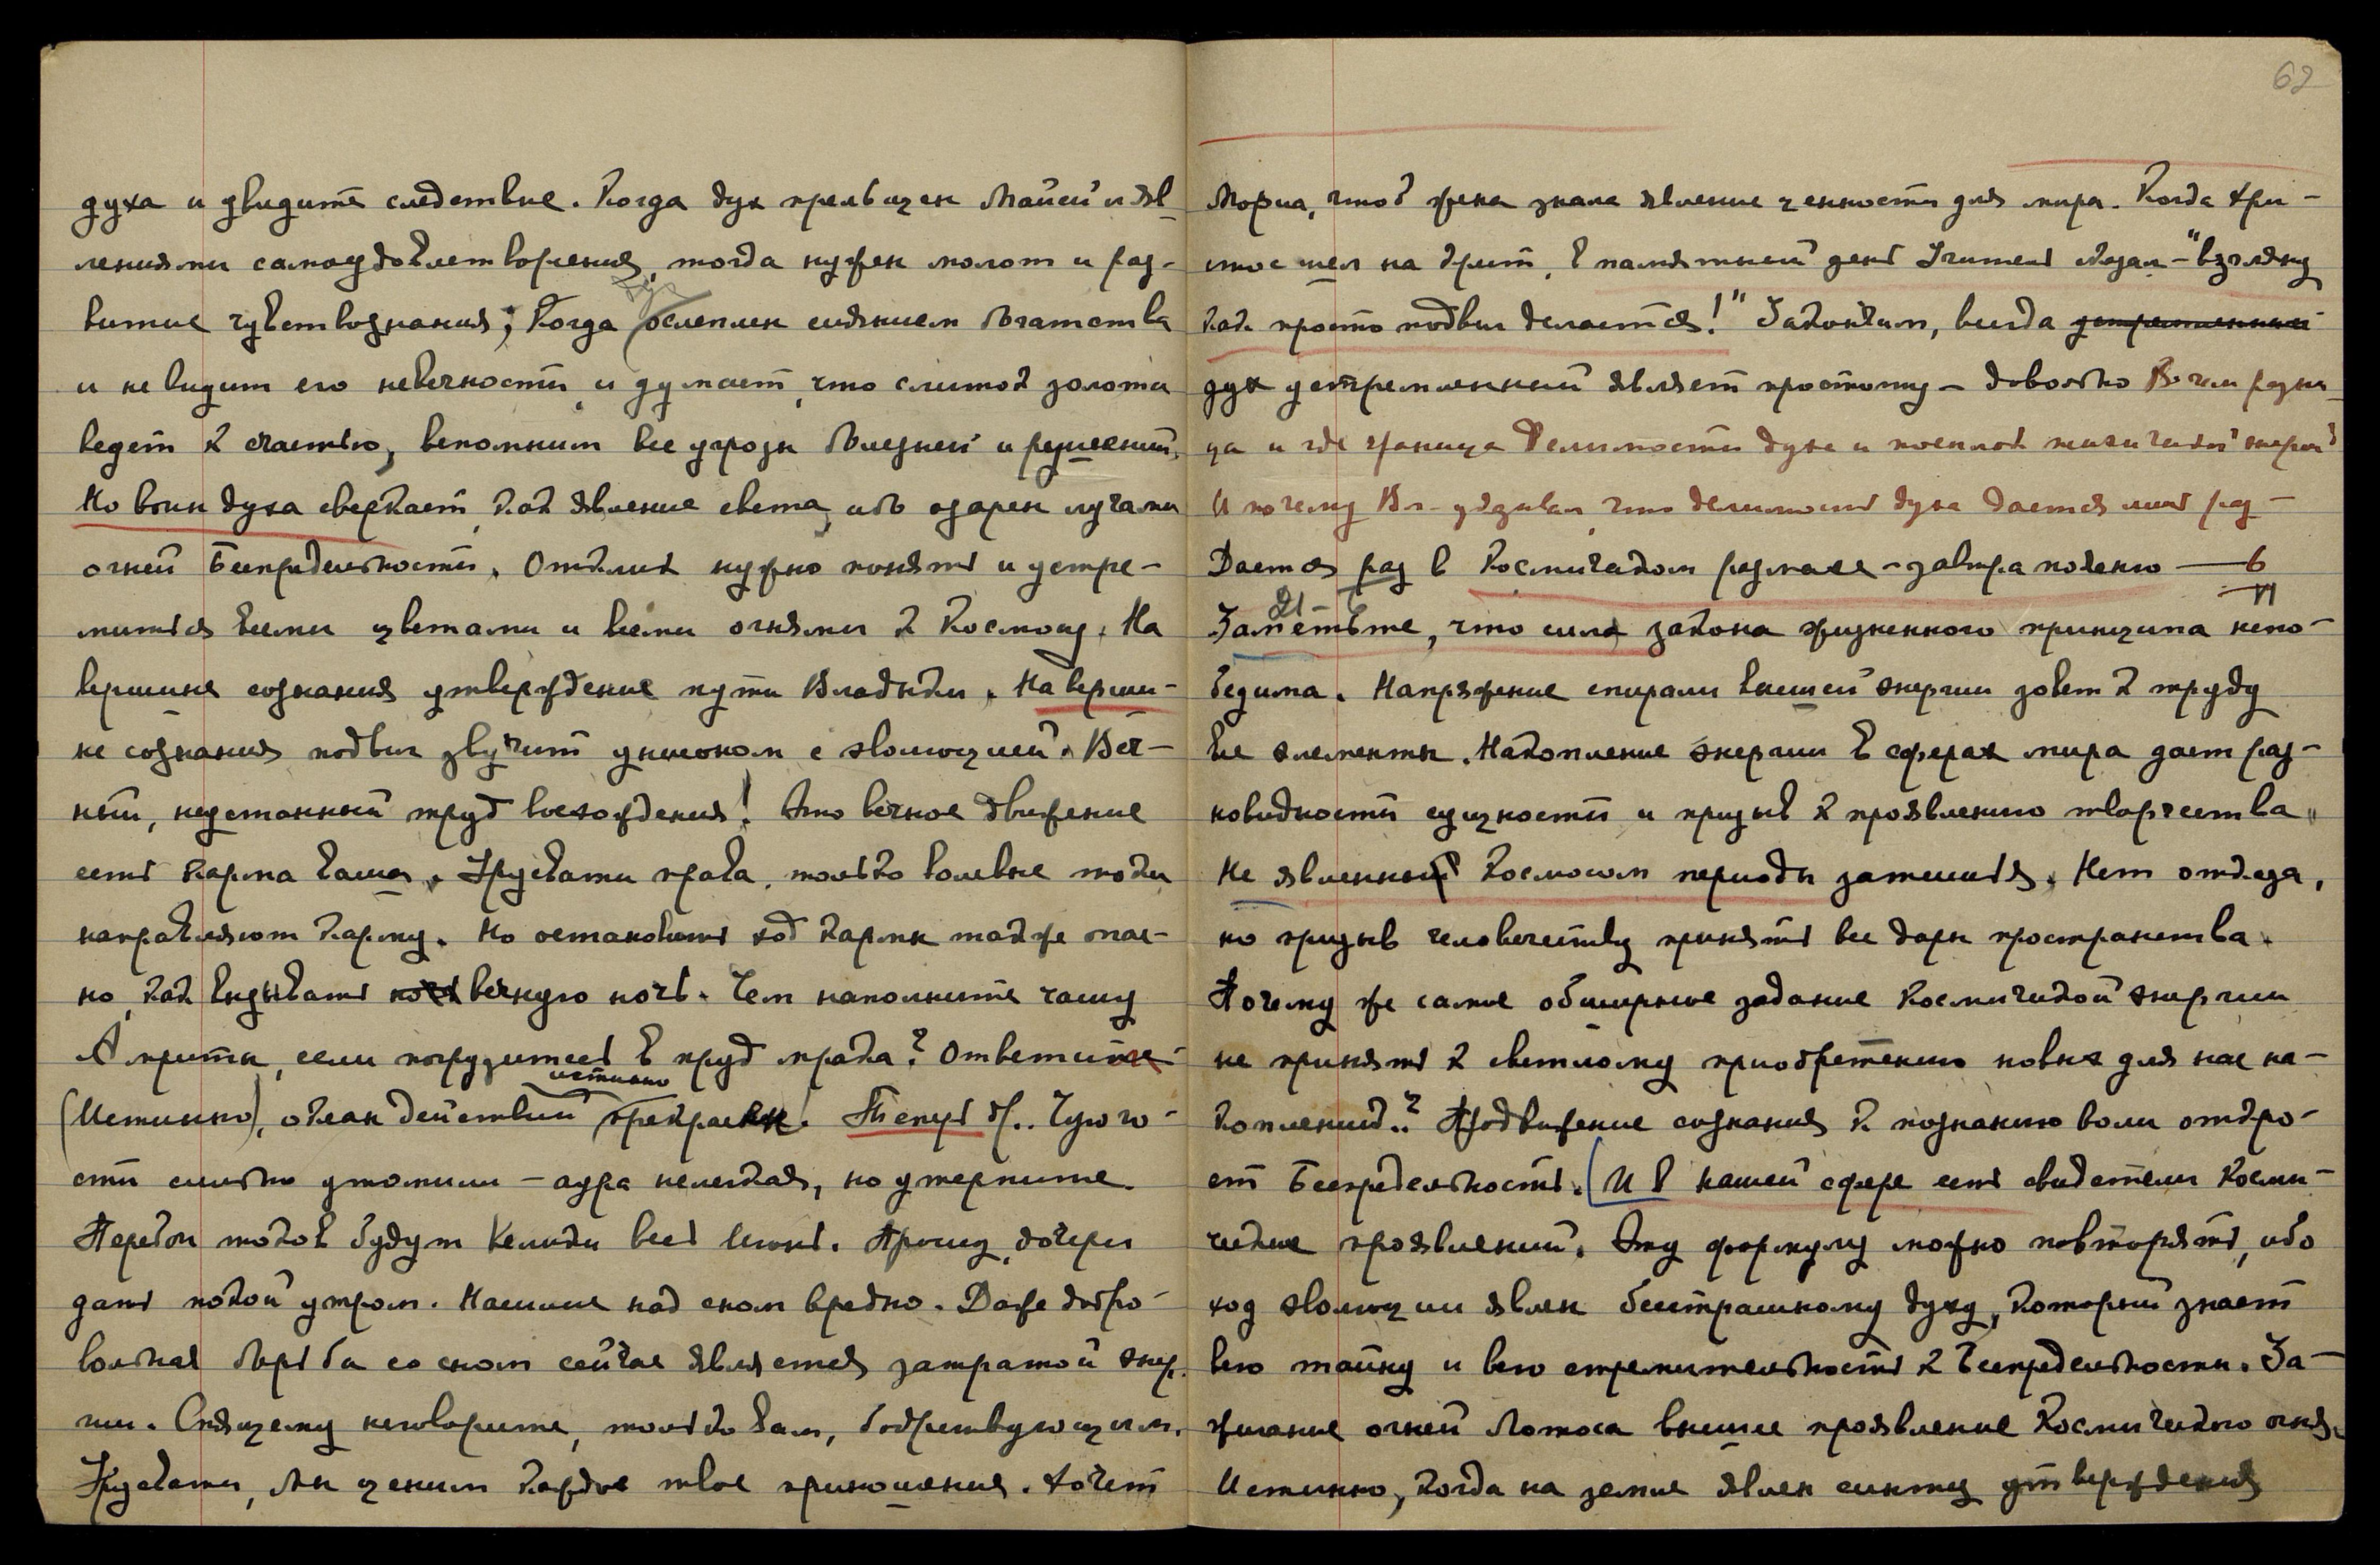 духа и увидите следствие. Когда дух прельщен Майей и яв-
лениями самоудовлетворения, тогда нужен молот и раз-
витие чувствознания; Когда дух ослеплен сиянием богатства
и не видит его невечности, и думает, что слиток золота
ведет к счастью, вспомним все угрозы болезней и решений.
Но воин духа сверкает, как явление света, ибо озарен лучами
огней Беспредельности. Отклик нужно понять и устре-
миться всеми цветами и всеми огнями к Космосу. На
вершине сознания утверждение пути Владыки. На верши-
не сознания подвиг звучит унисоном с эволюцией. Веч-
ный, неустанный труд восхождения! Это вечное движение
есть карма ваша. Урусвати права, только волевые токи
направляют карму. Но остановить ход кармы также опас-
но, как вызывать ночь вечную ночь. Чем наполните чашу
Амриты, если погрузитесь в пруд мрака? Ответите
(Истинно), океан действий истинно прекрасен! Теперь др.. Чуж го-
сти сильно утомили – аура нелегкая, но утерпите.
Перебои токов будут Келиди весь июнь. Прошу, дочери
дать покой утром. Насилие над сном вредно. Даже добро-
вольная борьба со сном сейчас является затратой энер-
гии. Спящему не говорите, только вам, бодрствующим.
Урусвати, Мы ценим каждое твое приношение. Хочет
62
Мориа, чтоб жена знала явление ценности для мира. Когда Хри-
стос шел на Крит, в памятный день Учитель сказал – "взгляну
как просто подвиг делается!" Закончим, всегда устремленный
дух устремленный являет простоту – довольно В чем разни-
ца и где граница Делимости духа и посылок психической энергии
И почему Вл. указывал, что делимость духа дается лишь раз –
Дается раз в Космическом размахе – завтра поясню — 6
VI
21 – 6
Заметьте, что сила закона жизненного принципа непо-
бедима. Напряжение спирали высшей энергии зовет к труду
все элементы. Накопление энергии в сферах мира дает раз-
новидности сущности и призыв к проявлению творчества.
Не явленный Космосом периоды затишья. Нет отказа,
но призыв человечеству принять все дары пространства.
Почему же самое обширное задание Космической энергии
не принять к светлому приобретению новых для нас на-
коплений..? Продвижение сознания к познанию воли откро-
ет Беспредельность. (И в нашей сфере есть свидетели Косми-
ческие проявлений. Эту формулу можно повторять, ибо
ход эволюции явлен бесстрашному духу, который знает
всю тайну и всю стремительность к Беспредельности. За-
жигание огней Лотоса высшее проявление Космического огня.
Истинно, когда на земле явлен синтез утверждения